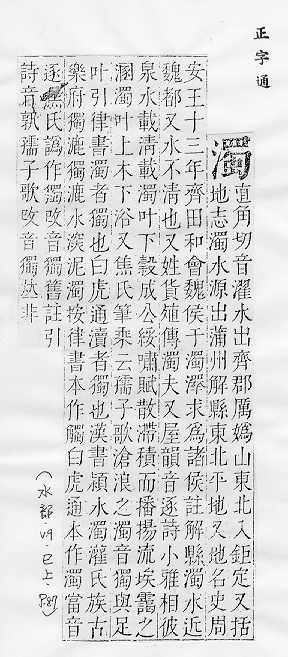 正字通
濁
直角切音濯水出齊郡厲嬀山東北入鉅定又括
地志濁水源出蒲州解縣東北平地又地名史周
安王十三年齊田和會魏侯于濁澤求爲諸侯註解縣濁水近
魏都又水不清也又姓貨殖傳濁夫又屋韻音逐詩小雅相彼
泉水載清載濁叶下穀成公綏嘯賦散滯積而播揚流埃靄之
溷濁叶上木下浴又焦氏筆乗云孺子歌滄浪之濁音獨與足
叶引律書濁者獨也白虎通瀆者獨也漢書潁水濁灌氏族古
樂府獨漉獨漉水深泥濁按律書本作觸白虎通本作濁當音
逐焦氏譌作獨攺音獨舊註引
詩音孰孺子歌攺音獨𠀤非
(水部